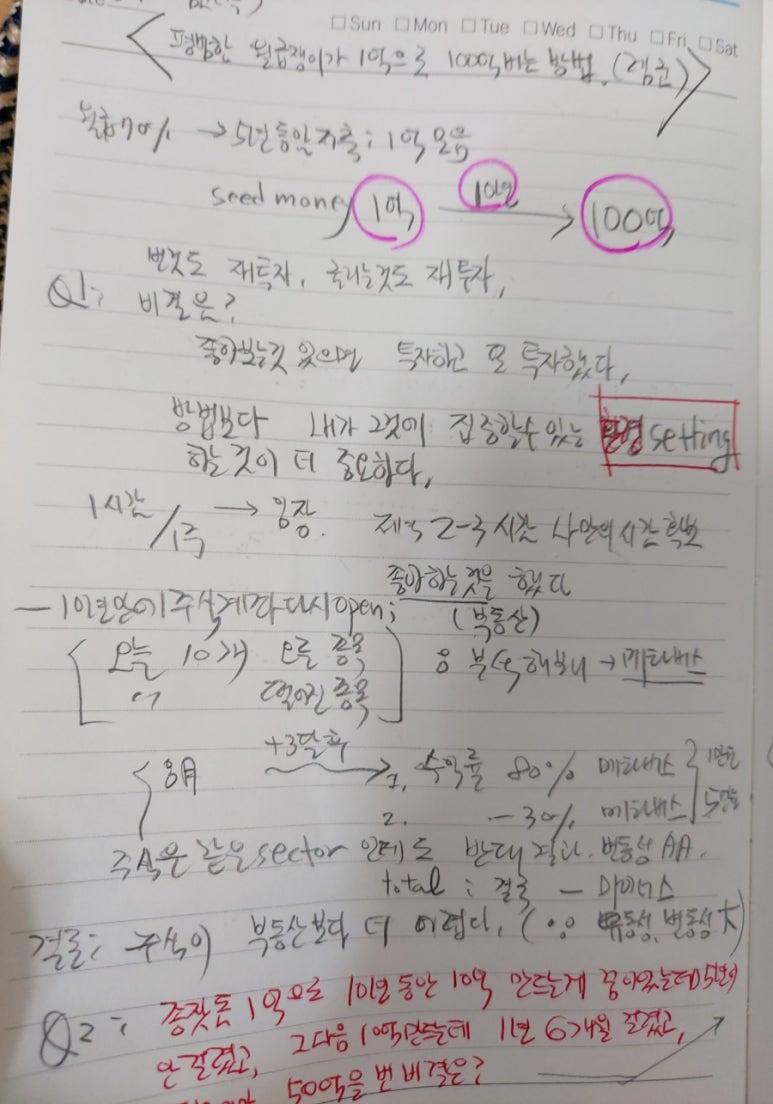 □Sun □Mon □Tue □Wed □Thu □Fri □Sat
<평범한 월급쟁이가 1억으로 100억버는 방법. (젬컨)>
월급70% → 5년동안 저축 : 1억 모음
seed money 1억 10년 → 100억
번것도 재투자, 굴리는것도 재투자,
Q1: 비결은?
좋아보는것 있으면 투자하고 또 투자했다,
방법보다 내가 그것에 집중할수 있는 환경 setting
하는 것이 더 중요하다,
1시간/1주 → 임장. 2-3시간 나만의 시간 확보
좋아하는것을 했다
(부동산)
— 10년만에 주식계좌 다시 open;
오늘 10개 오른 종목
〃 떨어진 종목
공부 해보니 → 메타버스
8月 +3달후 → 1. 수익률 80% 메타버스
2. -30% 메타버스
주식은 같은 sector 인데도 반대 결과. 변동성
total : 결국 — 마이너스
결론: 주식이 부동산보다 더 어렵다. (∵ 변동성 大)
Q2: 종잣돈 1억으로 10년동안 10억 만드는게 꿈이었는데 5년이
안걸렸고, 그다음 10억만드는데 1년 6개월 걸렸고,
50억을 번 비결은?